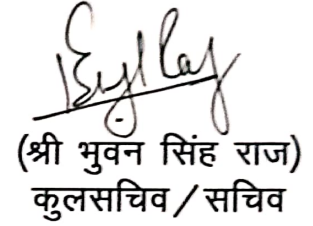 (श्री भुवन सिंह राज)
कुलसचिव / सचिव